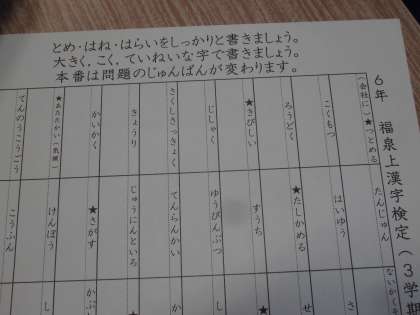 とめ・はね・はらいをしっかりと書きましょう。
大きく、こく、ていねいな字で書きましょう。
本番は問題のじゅんばんが変わります。
6年 福泉上漢字検定(3学期
(会社に)★つとめる
こくもつ
ろうどく
★きびしい
じしゃく
さくしさっきょく
きょうり
かいかく
★あたたかい(気候)
てんのうこうごう
たんじゅん
はいゆう
★たしかめる
すうち
ゆうびんぶつ
てんらんかい
じゅうにんといろ
★さがす
けんぽう
こうふん